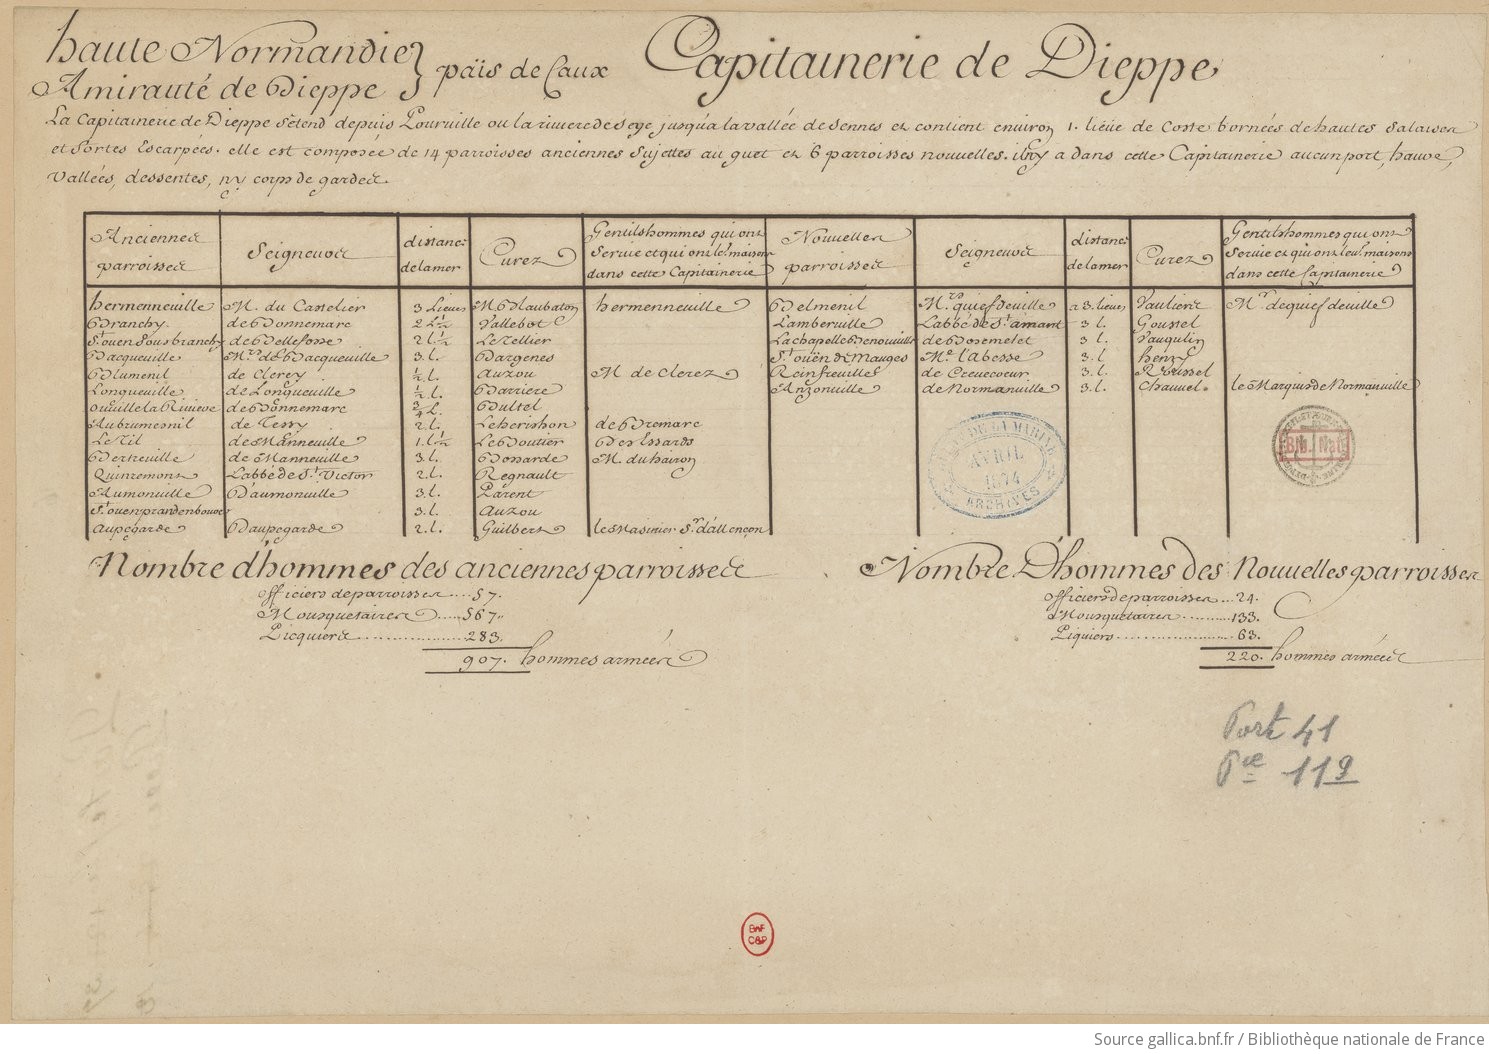 haute Normandie
Amirauté de Dieppe
païs de Caux
Capitainerie de Dieppe
La Capitainerie de Dieppe s'étend depuis Pourville ou la riviere de Seye jusqu'a la vallée de Sennes et contient environ 1. lieüe de Coste bornées de hautes falaises
et fortes Escarpées. elle est composée de 14 parroisses anciennes Sujettes au guet et 6 parroisses nouvelles. il ny a dans cette Capitainerie aucun port, havre,
Vallées, dessentes, ny corps de gardes.
Anciennes parroisses | Seigneurs | distance de la mer | Curez | Gentilshommes qui ont Servie et qui ont leur maisons dans cette Capitainerie | Nouvelles parroisses | Seigneurs | distance de la mer | Curez | Gentilshommes qui ont Servie et qui ont leurs maisons dans cette Capitainerie
hermenneuille | M. du Castelier | 3 Lieues | M. Blaubaton | hermenneuille | Belmenil | Mrs. quiefdeuille | a 3. lieues | Vaulient | Mr. de quiefdeuille
Branchy. | de Bonnemare | 2 L 1/2 | Vallebot | Lamberuille | L'abbé de St. amant | 3 l. | Goustel
St. ouen Sous branchy | de Bellefosse | 2 l 1/2 | Le Tellier | La chapelle Benouuille | de Bosmelet | 3 l. | Vauqulin
Bacqueuille | Mrs. de Bacqueuille | 3. l. | Dargenes | St. ouën de Mauges | Me. l'abesse | 3. l | henry
Blumenil | de Clerey | 1/2 l. | Auzou | M. de Clerez | Reinfreuille | de Creuecoeur | 3. l. | Roussel
Longueuille | de Longueuille | 1/2 l. | Barriere | Anzonuille | de Normanuille | 3. l. | Chauuel. | le Marquis de Normanuille
ouuille la Riuiere | de Bonnemare | 3/4 L. | Bultel
Aubrumesnil | de Tessy | 2. l. | Leherishon | de Bremare
Le Til | de Manneuille | 1. l 1/2 | Le Boutier | Des Essards
Bertreuille | de Manneuille | 3. l. | Bossarde | M. du hairon
Quinremont | L'abbé de St. Victor | 2. l. | Regnault
Aumonuille | D'aumonuille | 3. l. | Parent
St. ouen prandenbource | 3. l. | Auzou
Aupegarde | D'aupegarde | 2. l. | Guilbert | le Masinier Sr. d'allençon
Nombre d'hommes des anciennes parroisses
officiers de parroisses .... 57.
Mousquetaires ..... 567.
Picquiers .................. 283.
907. hommes armées
Nombre D'hommes des Nouuelles parroisses
officiers de parroisses ... 24.
Mousquetaires .......... 133.
Piquiers ................ 63.
220. hommes armées
DE LA MARINE
AVRIL
1874
ARCHIVES
Bib. Nat
Port 41
Pce 119
BnF
C&P
Source gallica.bnf.fr / Bibliothèque nationale de France